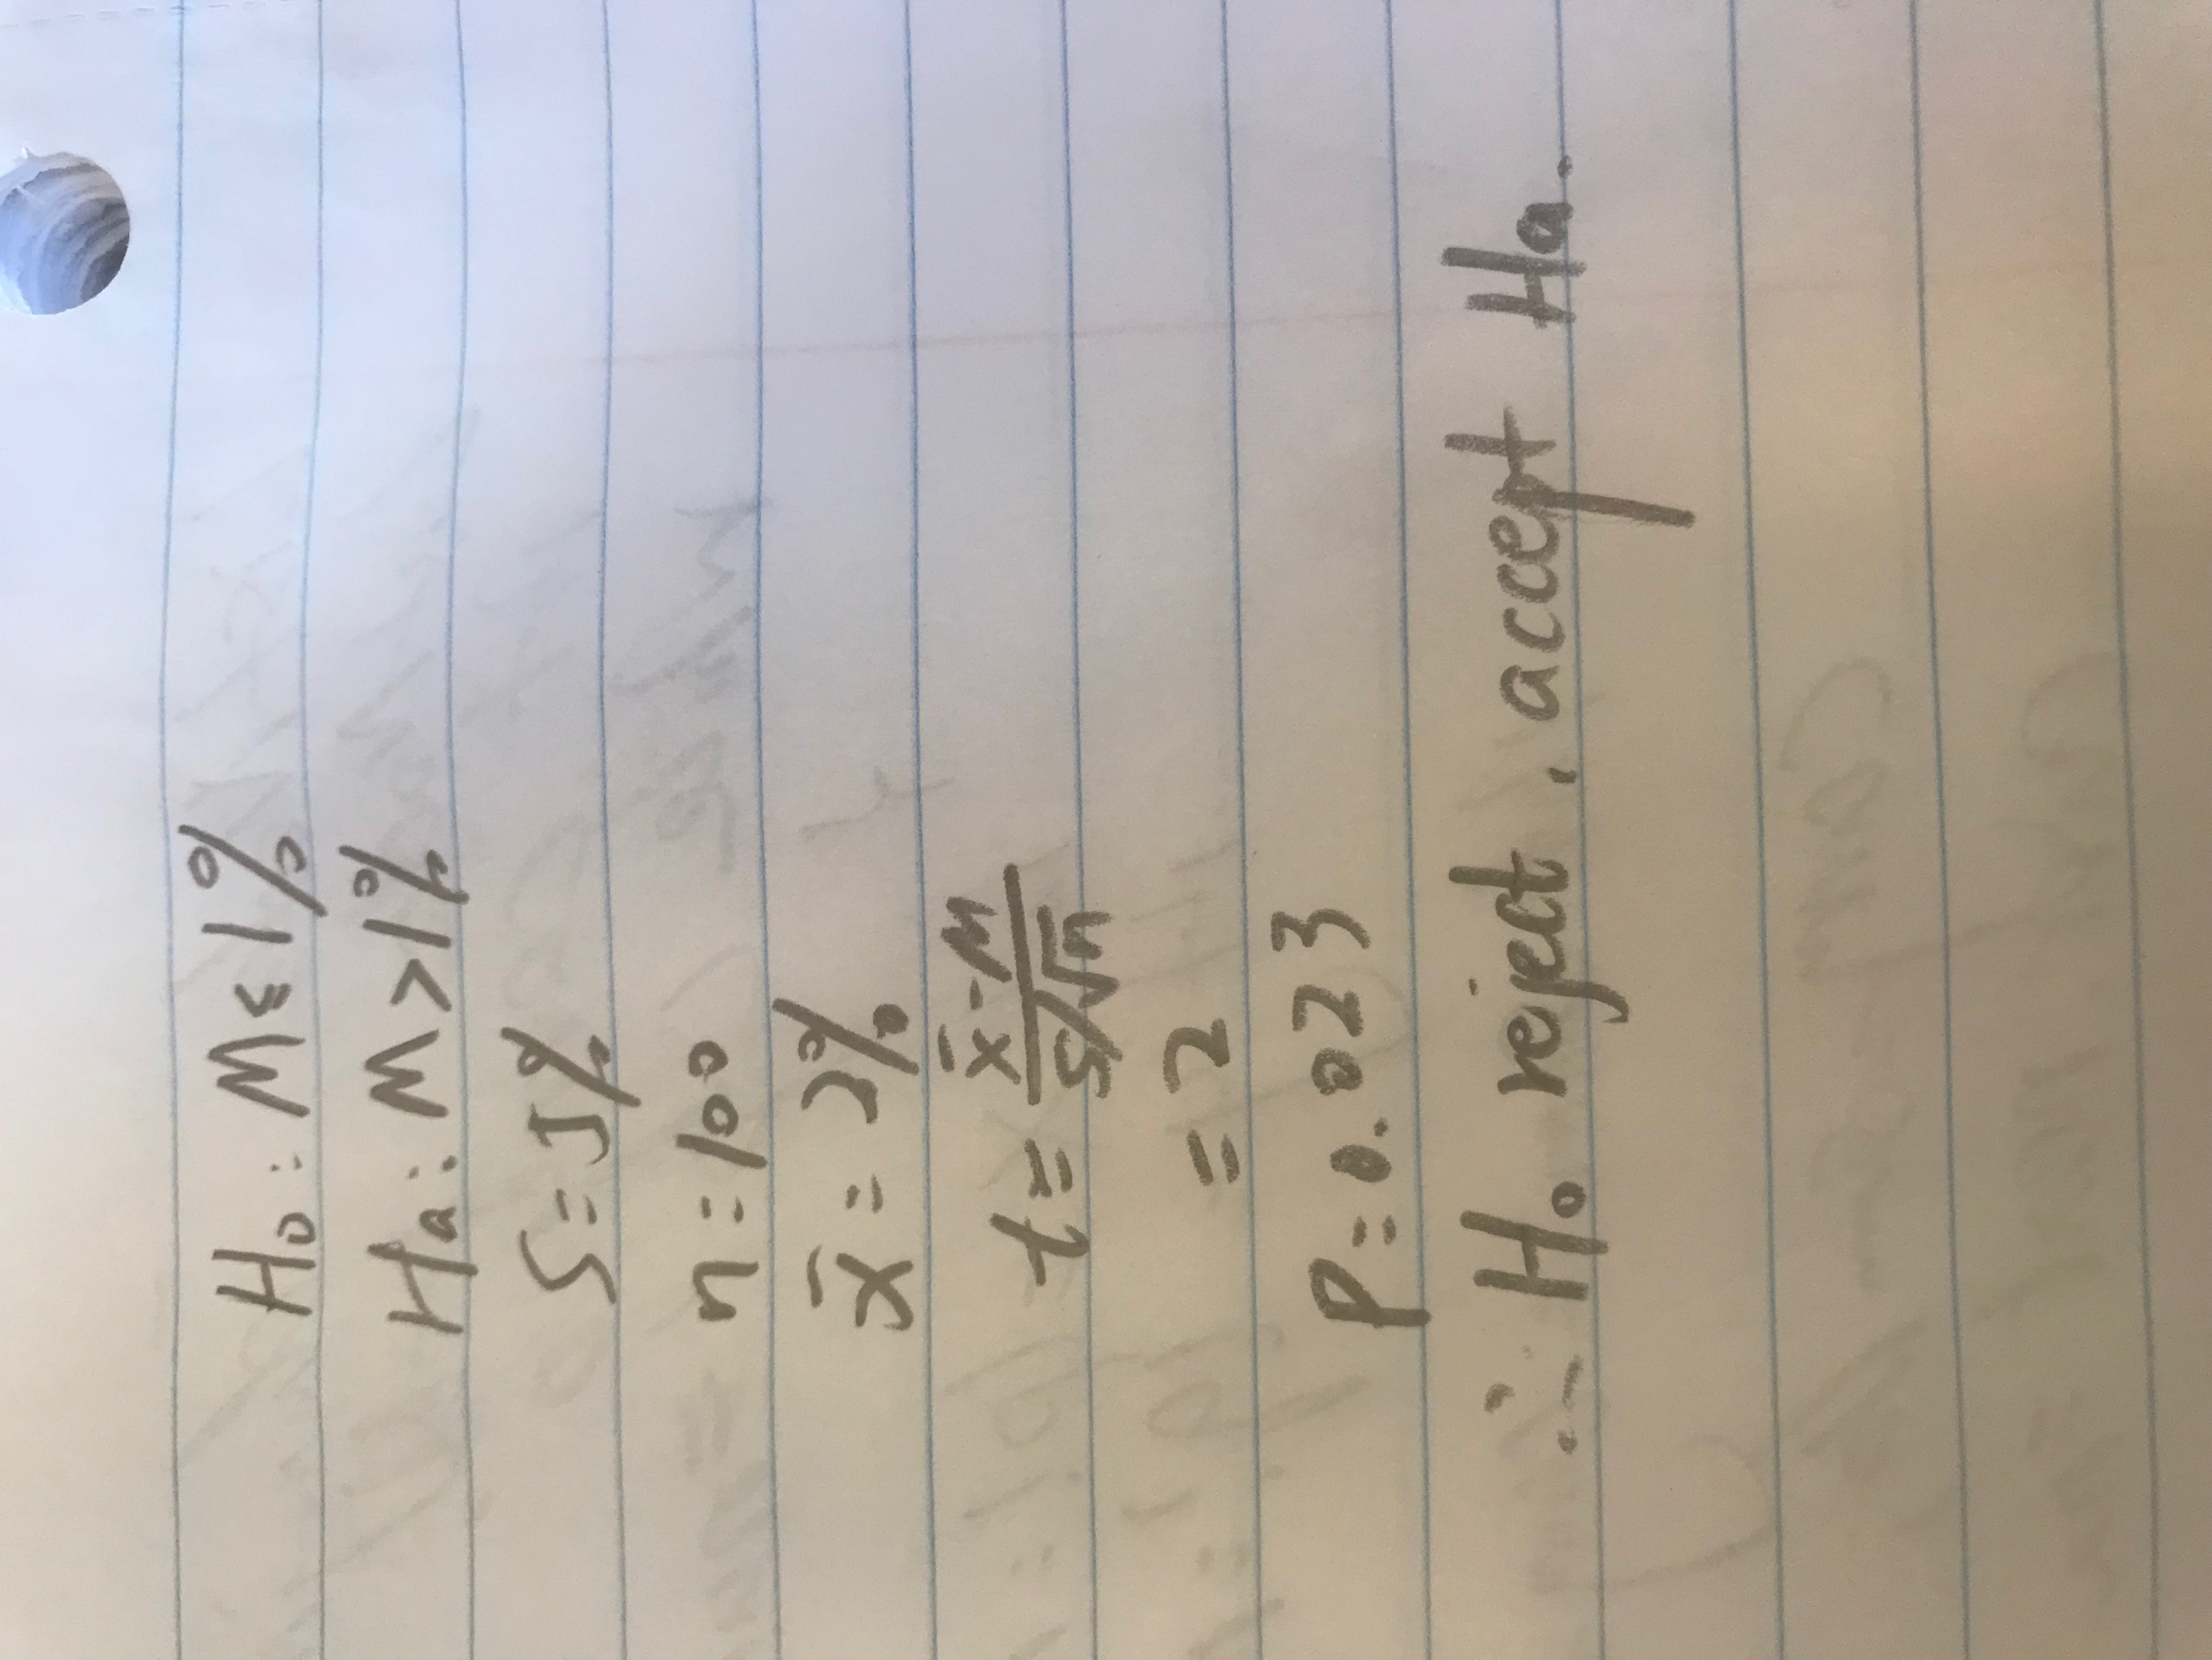 H₀: M ≤ 1%
Ha: M > 1%
S = 5%
n = 100
x̄ = 2%
t = (x̄ - M) / (S/√n)
= 2
P = 0.023
∴ H₀ reject, accept Ha.